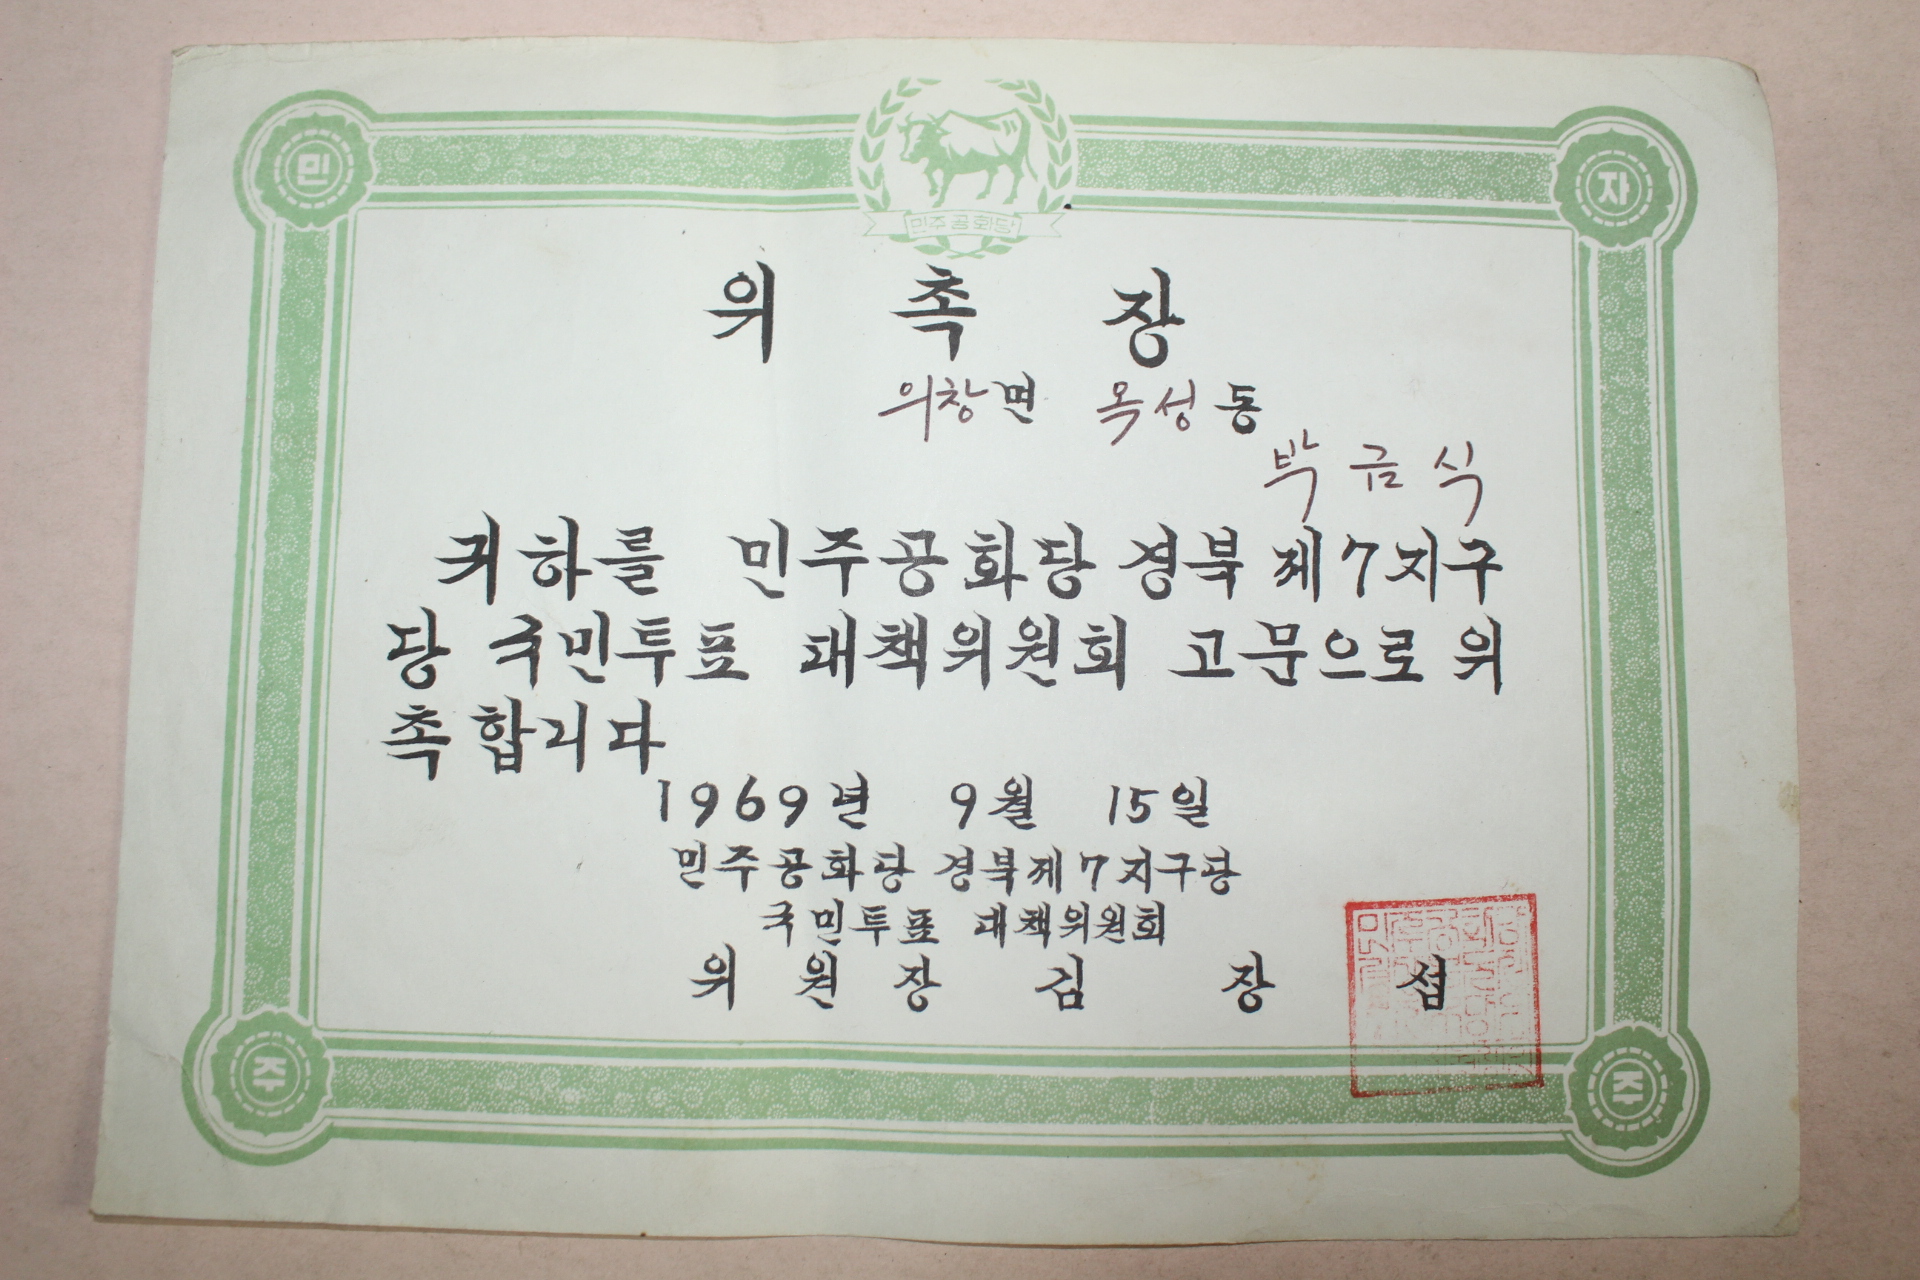 민 자
민주공화당
위 촉 장
의창면 옥성동
박금식
귀하를 민주공화당 경북 제7지구
당 국민투표 대책위원회 고문으로 위
촉합니다
1969년 9월 15일
민주공화당 경북제7지구당
국민투표 대책위원회
위 원 장 김 장 섭
주 조